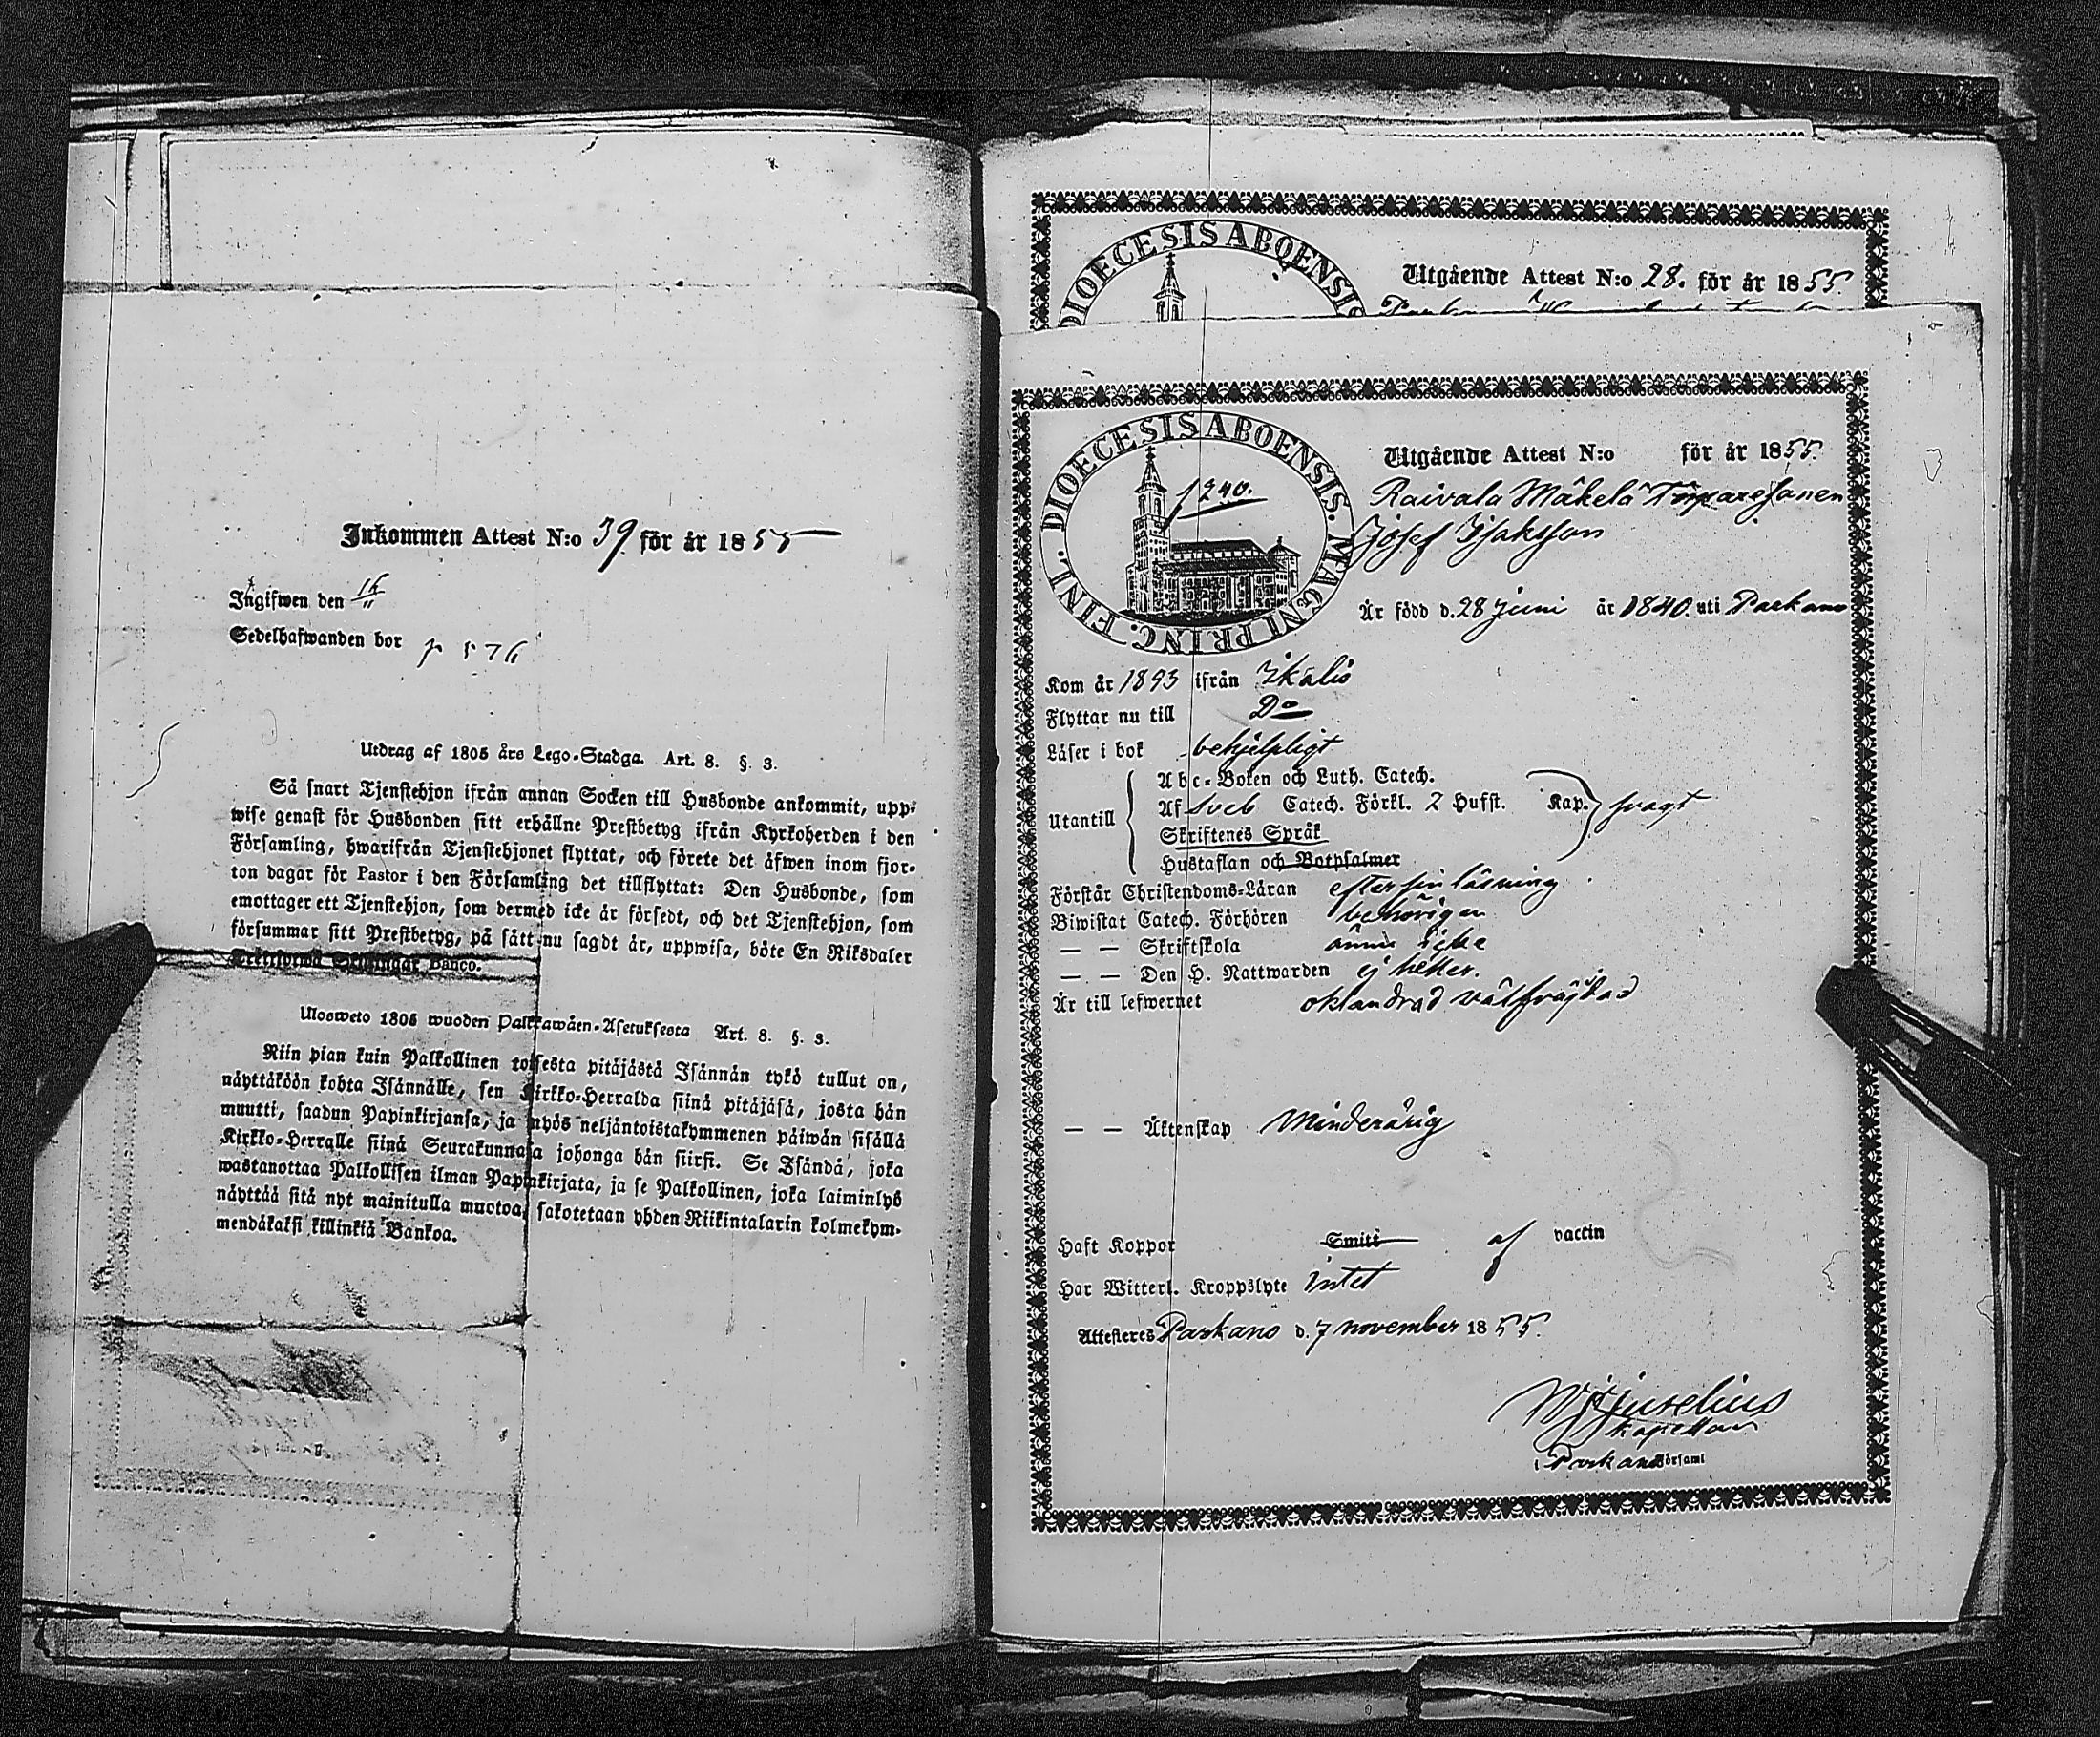 Inkommen Attest N:o 39 för år 1855
Ingifwen den 16/11
Sedelhafwanden bor p 576
Utdrag af 1805 års Lego-Stadga. Art. 8. §. 3.
Så snart Tjenstehjon ifrån annan Socken till Husbonde ankommit, upp-
wise genast för Husbonden sitt erhållne Prestbetyg ifrån Kyrkoherden i den
Församling, hwarifrån Tjenstehjonet flyttat, och förete det äfwen inom fjor-
ton dagar för Pastor i den Församling det tillflyttat: Den Husbonde, som
emottager ett Tjenstehjon, som dermed icke är försedt, och det Tjenstehjon, som
försummar sitt Prestbetyg, på sätt nu sagdt är, uppwisa, böte En Riksdaler
Skillingar Banco.
Ulosweto 1805 wuoden Palkkawäen-Asetuksesta Art. 8. §. 3.
Niin pian kuin Palkollinen toisesta pitäjästä Isännän tykö tullut on,
näyttäköön kohta Isännälle, sen Kirkko-Herralda siinä pitäjäsä, josta hän
muutti, saadun Papinkirjansa, ja myös neljäntoistakymmenen päiwän sisällä
Kirkko-Herralle siinä Seurakunnasa johonga hän siirsi. Se Isändä, joka
wastanottaa Palkollisen ilman Papinkirjata, ja se Palkollinen, joka laiminlyö
näyttää sitä nyt mainitulla muotoa, sakotetaan yhden Riikintalarin kolmekym-
mendäkaksi killinkiä Bankoa.
DIOECESIS ABOENSIS
Utgående Attest N:o 28. för år 1855.
DIOECESIS ABOENSIS. MAGNI PRINC. FINL.
1240.
Utgående Attest N:o för år 1855.
Raivala Mäkelä
Josef Isaksson
Är född d. 28 juni år 1840. uti Parkano
Kom år 1893 ifrån Ikalis
Flyttar nu till Do
Läser i bok behjelpligt
Utantill
Abc-Boken och Luth. Catech.
Af Sveb Catech. Förkl. 2 Hufst. Kap. svagt
Skriftenes Språk
Hustaflan och Botpsalmer
Förstår Christendoms-Läran efter sin läsning
Biwistat Catech. Förhören behörigen
— — Skriftskola ännu icke
— — Den H. Nattwarden ej heller.
Är till lefwernet oklandrad välfräjdad
— — Äktenskap Minderårig
Haft Koppor Smitt af vaccin
Har Witterl. Kroppslyte intet
Attesteres Parkano d. 7 november 1855.
Juselius
Kapellan
i Parkano Församl